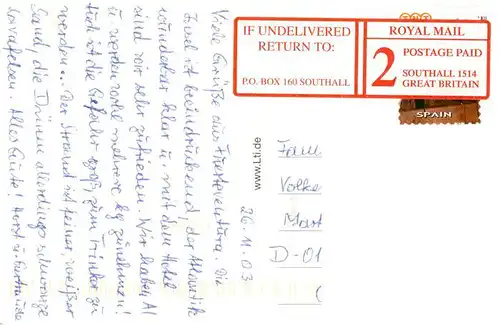 Viele Grüße aus Fuerteventura. Die
Insel ist beeindruckend, der Atlantik
wunderbar klar u. mit dem Hotel
sind wir sehr zufrieden. Wir haben AI
u. werden wohl mehrere kg zunehmen!
Auch ist die Gefahr groß zum Trinker zu
werden... Der Strand ist feiner, weißer
Sand, die Dünen allerdings schwarze
Lavafelsen. Alles Gute! Horst u. Gertraude
26.11.03
www.Lti.de
IF UNDELIVERED
RETURN TO:
P.O. BOX 160 SOUTHALL
ROYAL MAIL
2 POSTAGE PAID
SOUTHALL 1514
GREAT BRITAIN
TNT
SPAIN
Fam
Volke
Mart
D-01